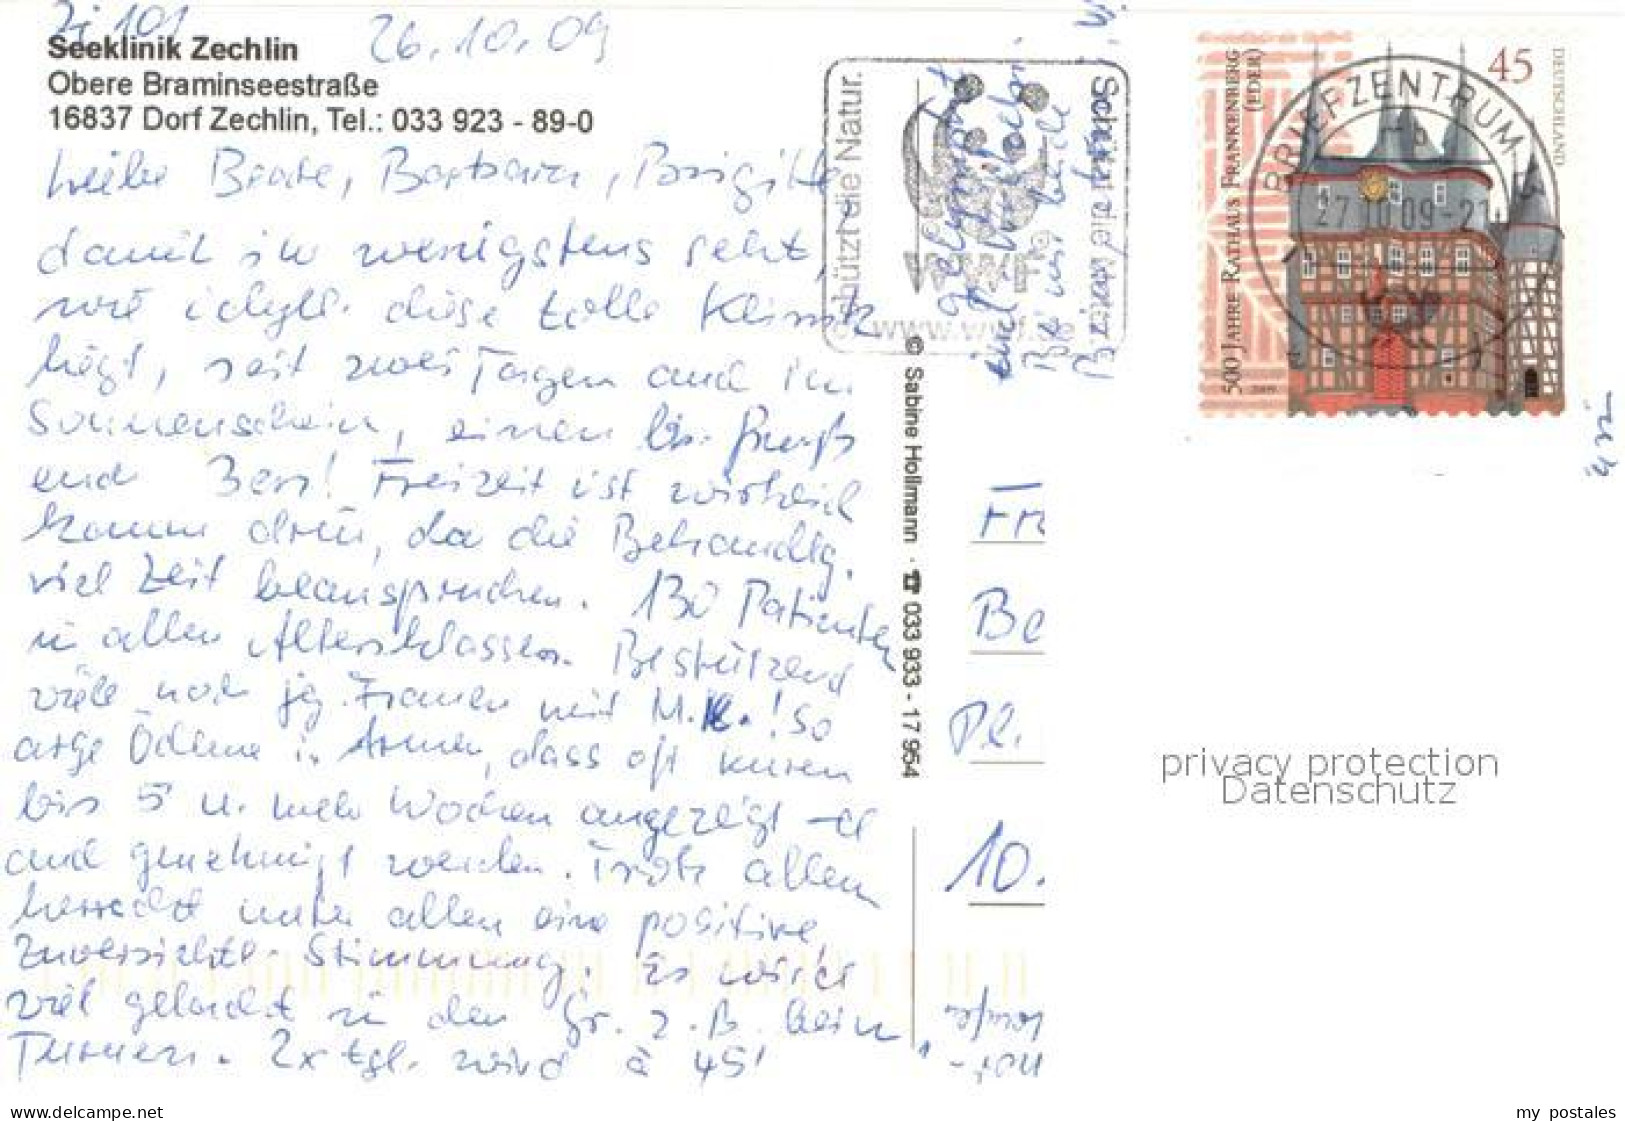 Zi 101 26.10.09
Seeklinik Zechlin
Obere Braminseestraße
16837 Dorf Zechlin, Tel.: 033 923 - 89-0
Liebe Beate, Barbara, Brigitte
damit ihr wenigstens seht,
wie idyll. diese tolle Klinik
liegt, seit zwei Tagen auch im
Sonnenschein, einen lb. Gruß
und Bess! Freizeit ist wirklich
kaum drin, da die Behandlg.
viel Zeit beanspruchen. 130 Patienten
in allen Altersklassen. Bestürzend
viele noch jg. Frauen mit M.K.! So
arge Ödeme i. Armen, dass oft Kuren
bis 5 u. mehr Wochen angezeigt
und genehmigt werden. Trotz allem
herrscht unter allen eine positive,
zuversichtl. Stimmung. Es wird
viel gelacht in den Gr. z.B. beim
Turnen. 2x tgl. wird à 45'
gelympht
und
Bei uns beide
Schützt die Natur.
www.wwf.de
WWF
© Sabine Hollmann · ☎ 033 933 - 17 954
500 JAHRE RATHAUS FRANKENBERG
(EDER)
45
DEUTSCHLAND
2009
BRIEFZENTRUM
27.10.09-21
Fr
Be
Pl.
10.
privacy protection
Datenschutz
www.delcampe.net
my_postales